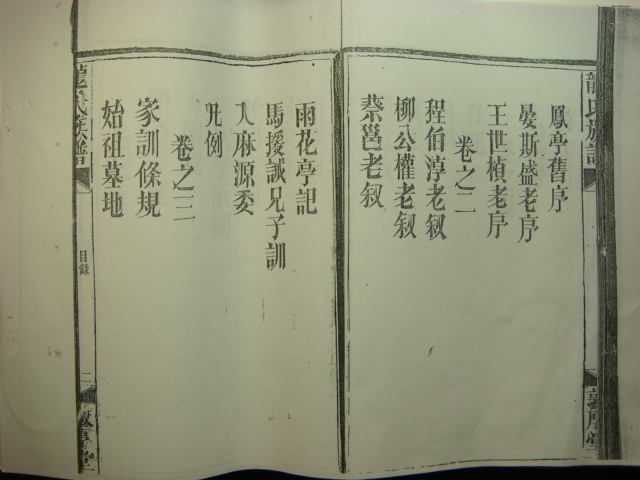 龍氏族譜
敦厚堂
鳳亭舊序
晏斯盛老序
王世楨老序
卷之二
程伯淳老叙
柳公權老叙
蔡邕老叙
雨花亭記
馬援誡兄子訓
入麻源委
凡例
卷之三
家訓條規
始祖墓地
龍氏族譜
目錄
一
敦厚堂